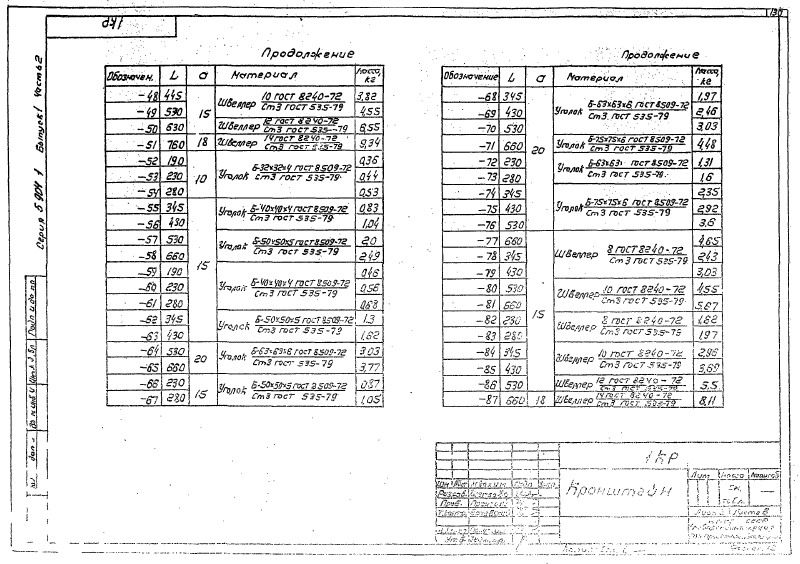 130
1КР
Серия 5.904-1 Выпуск 1 Часть 2
Продолжение
Обозначен. L a Материал Масса, кг
-48 445 15 Швеллер 10 ГОСТ 8240-72 / Ст3 ГОСТ 535-79 3,82
-49 530 4,55
-50 630 Швеллер 12 ГОСТ 8240-72 / Ст3 ГОСТ 535-79 6,55
-51 760 18 Швеллер 14 ГОСТ 8240-72 / Ст3 ГОСТ 535-79 9,34
-52 190 10 Уголок Б-32×32×4 ГОСТ 8509-72 / Ст3 ГОСТ 535-79 0,36
-53 230 0,44
-54 280 0,53
-55 345 15 Уголок Б-40×40×4 ГОСТ 8509-72 / Ст3 ГОСТ 535-79 0,83
-56 430 1,04
-57 530 Уголок Б-50×50×5 ГОСТ 8509-72 / Ст3 ГОСТ 535-79 2,0
-58 660 2,49
-59 190 Уголок Б-40×40×4 ГОСТ 8509-72 / Ст3 ГОСТ 535-79 0,46
-60 230 0,56
-61 280 0,68
-62 345 Уголок Б-50×50×5 ГОСТ 8509-72 / Ст3 ГОСТ 535-79 1,3
-63 430 1,62
-64 530 20 Уголок Б-63×63×6 ГОСТ 8509-72 / Ст3 ГОСТ 535-79 3,03
-65 660 3,77
-66 230 15 Уголок Б-50×50×5 ГОСТ 8509-72 / Ст3 ГОСТ 535-79 0,87
-67 280 1,05
Продолжение
Обозначение L a Материал Масса, кг
-68 345 20 Уголок Б-63×63×6 ГОСТ 8509-72 / Ст3 ГОСТ 535-79 1,97
-69 430 2,46
-70 530 3,03
-71 660 Уголок Б-75×75×6 ГОСТ 8509-72 / Ст3 ГОСТ 535-79 4,48
-72 230 Уголок Б-63×63 ГОСТ 8509-72 / Ст3 ГОСТ 535-79 1,31
-73 280 1,6
-74 345 Уголок Б-75×75×6 ГОСТ 8509-72 / Ст3 ГОСТ 535-79 2,35
-75 430 2,92
-76 530 3,6
-77 660 15 Швеллер 8 ГОСТ 8240-72 / Ст3 ГОСТ 535-79 4,65
-78 345 2,43
-79 430 3,03
-80 530 Швеллер 10 ГОСТ 8240-72 / Ст3 ГОСТ 535-79 4,55
-81 660 5,67
-82 230 Швеллер 8 ГОСТ 8240-72 / Ст3 ГОСТ 535-79 1,62
-83 280 1,97
-84 345 Швеллер 10 ГОСТ 8240-72 / Ст3 ГОСТ 535-79 2,96
-85 430 3,69
-86 530 Швеллер 12 ГОСТ 8240-72 / Ст3 ГОСТ 535-79 5,5
-87 660 18 Швеллер 14 ГОСТ 8240-72 / Ст3 ГОСТ 535-79 8,11
1КР
Кронштейн
Лит Масса Масштаб
См. табл. —
Разраб.
Пров.
Утв.